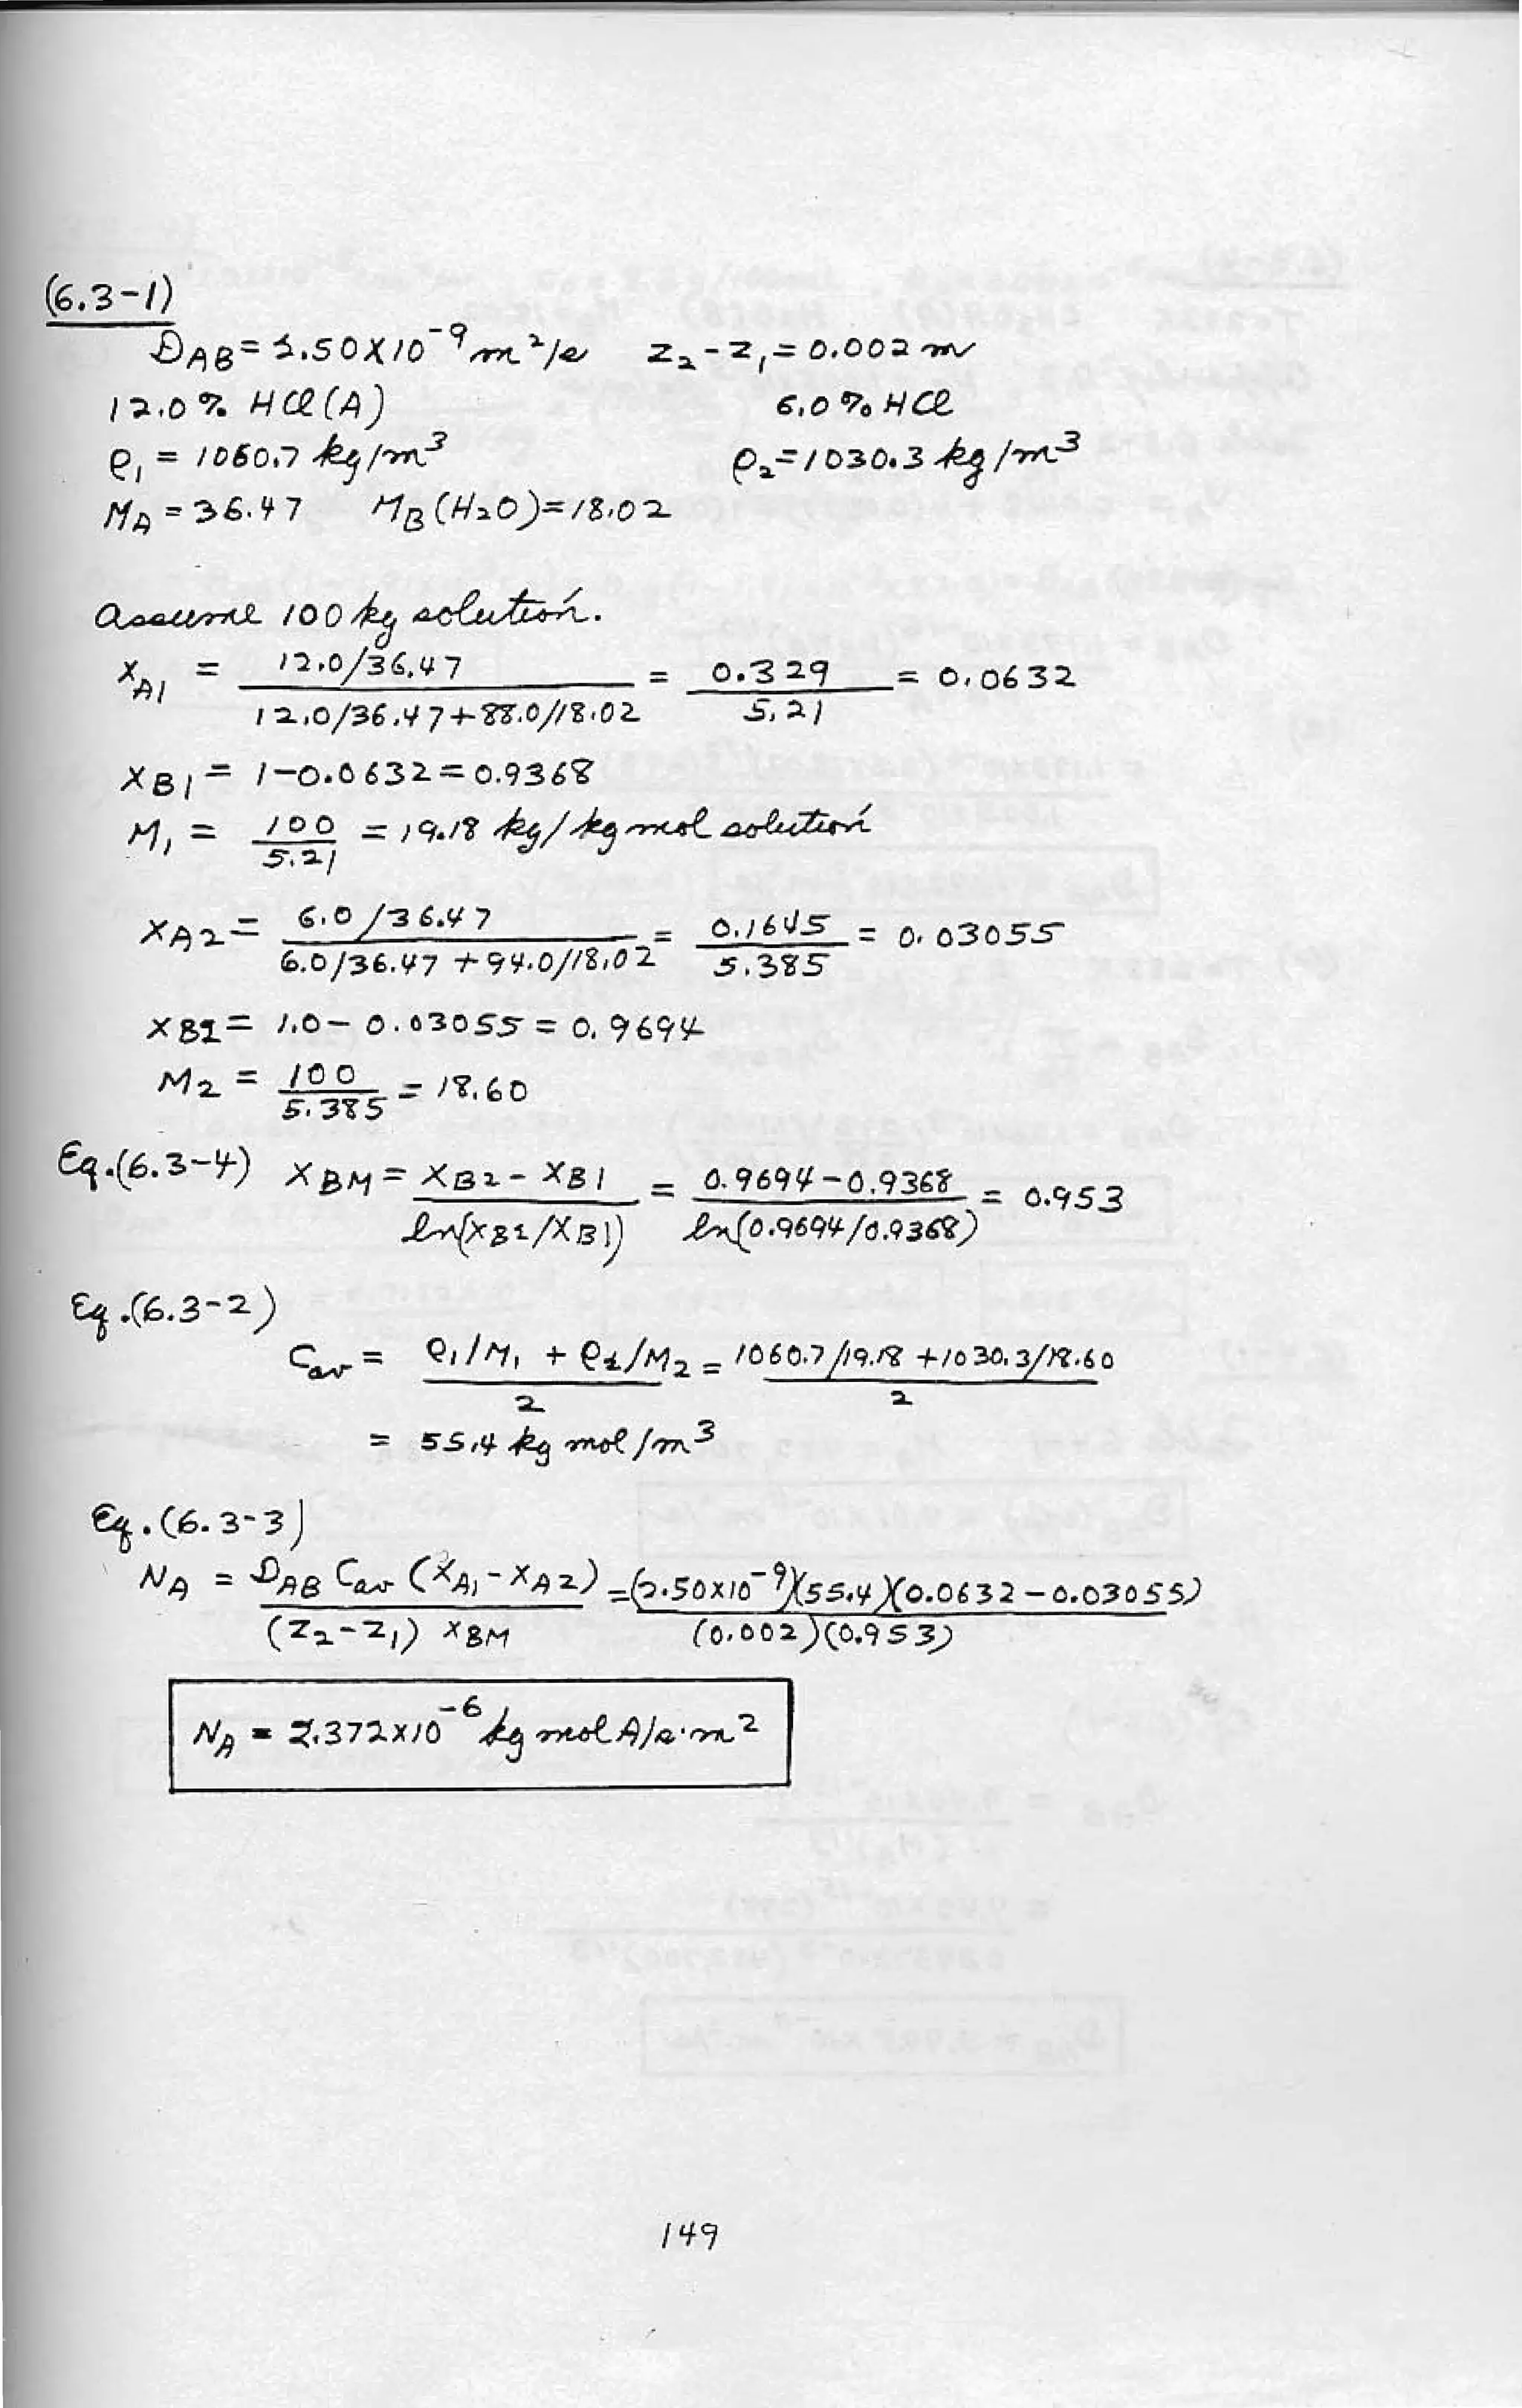 (6.3-1)
D_AB = 2.50×10^-9 m²/s   z₂ - z₁ = 0.002 m
12.0 % HCl (A)   6.0 % HCl
ρ₁ = 1060.7 kg/m³   ρ₂ = 1030.3 kg/m³
M_A = 36.47   M_B (H₂O) = 18.02
Assume 100 kg solution.
x_A1 = (12.0/36.47) / (12.0/36.47 + 88.0/18.02) = 0.329 / 5.21 = 0.0632
x_B1 = 1 - 0.0632 = 0.9368
M₁ = 100 / 5.21 = 19.18 kg/kg mol solution
x_A2 = (6.0/36.47) / (6.0/36.47 + 94.0/18.02) = 0.1645 / 5.385 = 0.03055
x_B2 = 1.0 - 0.03055 = 0.9694
M₂ = 100 / 5.385 = 18.60
Eq.(6.3-4)   x_BM = (x_B2 - x_B1) / ln(x_B2/x_B1) = (0.9694 - 0.9368) / ln(0.9694/0.9368) = 0.953
Eq.(6.3-2)
C_av = (ρ₁/M₁ + ρ₂/M₂) / 2 = (1060.7/19.18 + 1030.3/18.60) / 2
= 55.4 kg mol/m³
Eq.(6.3-3)
N_A = D_AB C_av (x_A1 - x_A2) / (z₂ - z₁) x_BM = (2.50×10^-9)(55.4)(0.0632 - 0.03055) / (0.002)(0.953)
N_A = 2.372×10^-6 kg mol A/s·m²
149